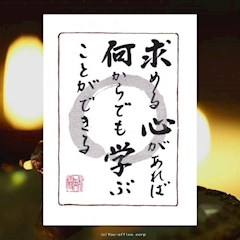 求める心があれば
何からでも学ぶ
ことができる
(c)You-office.corp